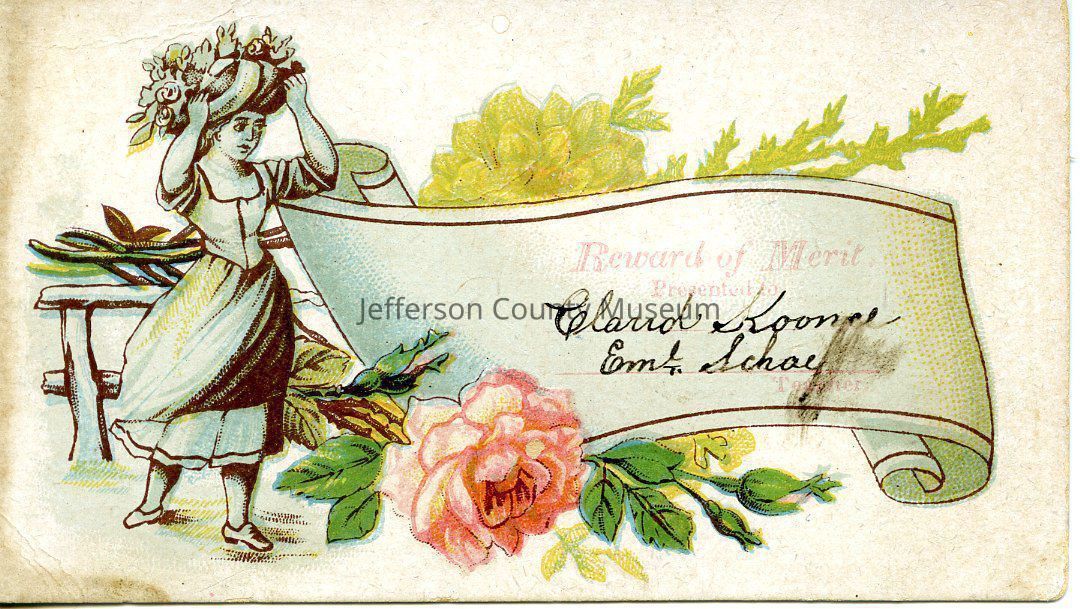 Reward of Merit.
Presented to
Jefferson County Museum
Koonce
Emt. Schae
Teacher